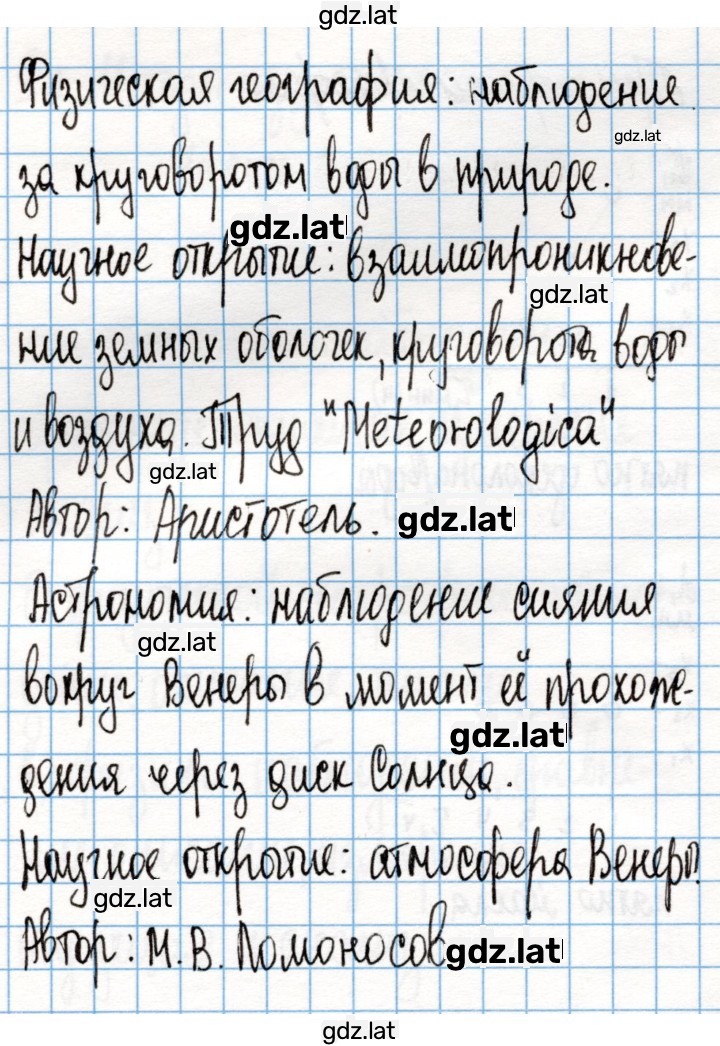 gdz.lat
Физическая география: наблюдение
gdz.lat
за круговоротом воды в природе.
gdz.lat
Научное открытие: взаимопроникнове-
gdz.lat
ние земных оболочек, круговорота воды
и воздуха. Труд "Meteorologica"
gdz.lat
Автор: Аристотель.
gdz.lat
Астрономия: наблюдение сияния
gdz.lat
вокруг Венеры в момент её прохож-
gdz.lat
дения через диск Солнца.
Научное открытие: атмосфера Венеры.
gdz.lat
Автор: М.В. Ломоносов
gdz.lat
gdz.lat